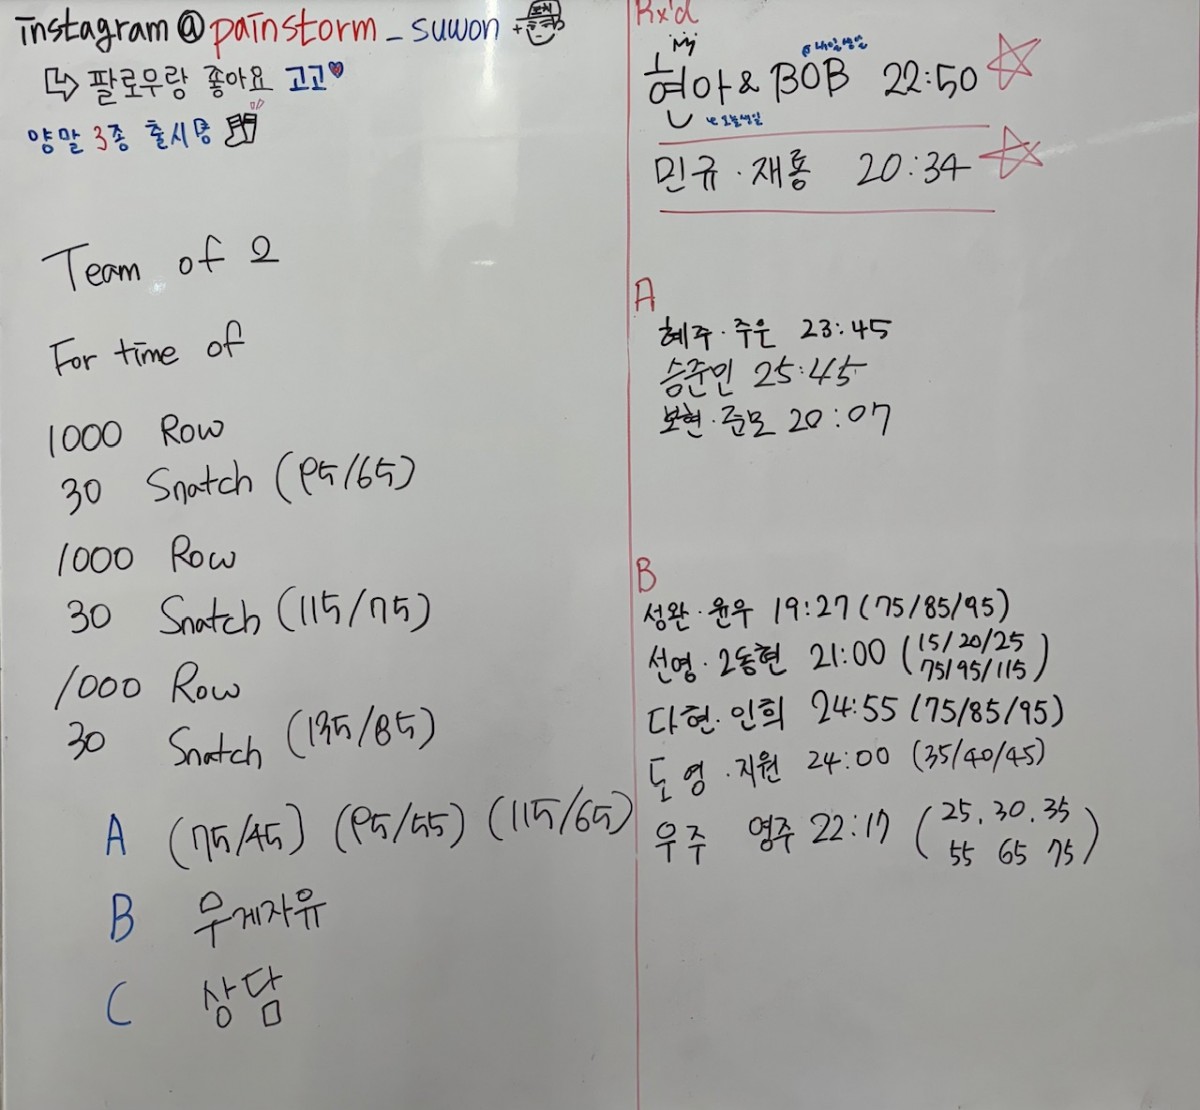 instagram@painstorm_suwon
팔로우랑 좋아요 고고♥
양말 3종 출시
Team of 2
For time of
1000 Row
30 Snatch (95/65)
1000 Row
30 Snatch (115/75)
1000 Row
30 Snatch (135/85)
A (75/45) (95/55) (115/65)
B 무게자유
C 상담
Rx'd
내일생일
현아 & BOB 22:50
오늘생일
민규·재룡 20:34
A
혜주·주은 23:45
승준민 25:45
보현·준모 20:07
B
성완·윤우 19:27 (75/85/95)
선영·2동현 21:00 (15/20/25
75/95/115)
다현·인희 24:55 (75/85/95)
도영·지원 24:00 (35/40/45)
우주 영주 22:17 (25, 30, 35
55 65 75)